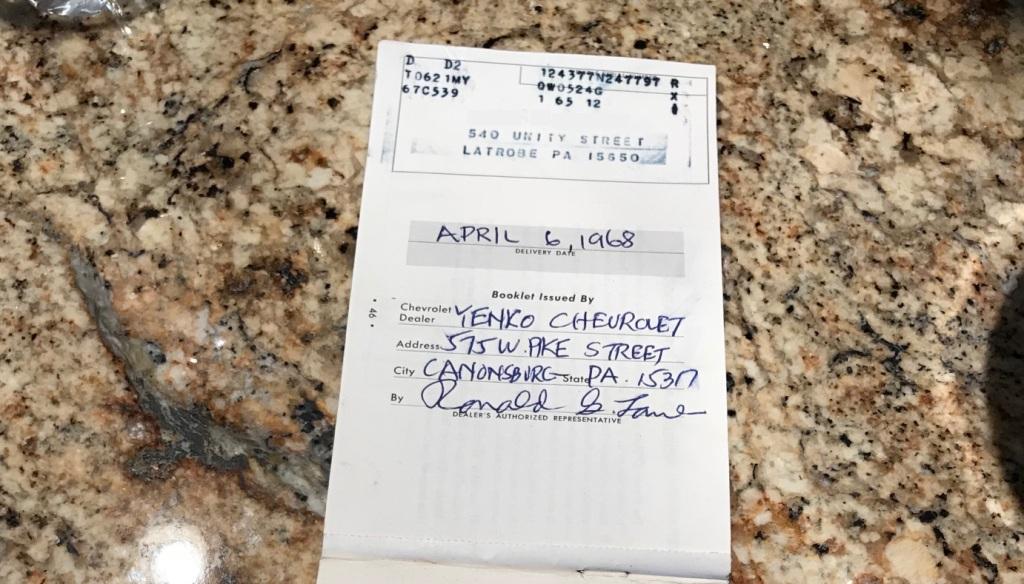 D D2
T0621MY
67C539
124377N247797
0W0524G
1 65 12
R
X
540 UNITY STREET
LATROBE PA 15650
APRIL 6, 1968
DELIVERY DATE
Booklet Issued By
Chevrolet Dealer YENKO CHEVROLET
Address 575 W. PIKE STREET
City CANONSBURG State PA. 15317
By Ronald G.
DEALER'S AUTHORIZED REPRESENTATIVE
• 46 •